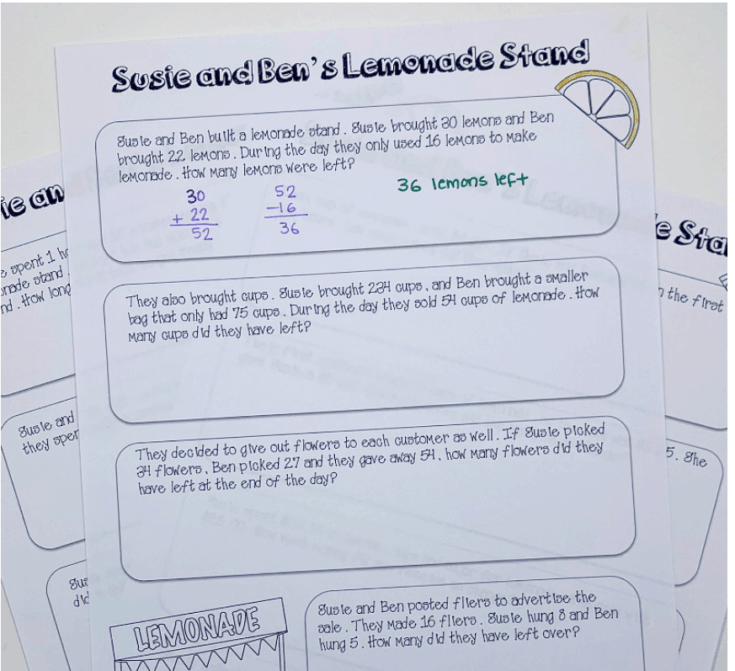 Susie and Ben's Lemonade Stand
Susie and Ben built a lemonade stand. Susie brought 30 lemons and Ben
brought 22 lemons. During the day they only used 16 lemons to make
lemonade. How many lemons were left?
36 lemons left
30
+ 22
52
52
-16
36
They also brought cups. Susie brought 234 cups, and Ben brought a smaller
bag that only had 75 cups. During the day they sold 54 cups of lemonade. How
many cups did they have left?
They decided to give out flowers to each customer as well. If Susie picked
34 flowers, Ben picked 27 and they gave away 54, how many flowers did they
have left at the end of the day?
LEMONADE
Susie and Ben posted fliers to advertise the
sale. They made 16 fliers. Susie hung 8 and Ben
hung 5. How many did they have left over?
spent 1
stand
. How long
Susie and
they
the first
5. She